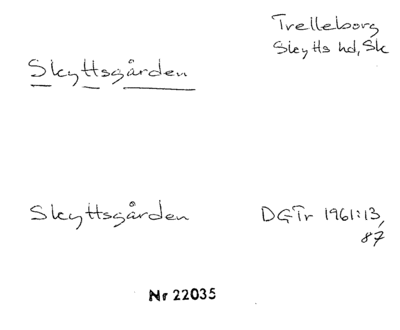 Trelleborg
Skytts hd, Sk
Skyttsgården
Skyttsgården DGTr 1961:13,
87
Nr 22035